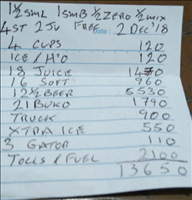 1½ SML 1 SMB ½ ZERO ½ MIX
4ST 2JU FREE 2 DEC '18
4 CUPS 120
ICE/H'O 120
18 JUICE 1470
16 SOFT 960
12½ BEER 5530
21 BUKO 1790
TRUCK 900
XTRA ICE 550
3 GATOR 110
TOLLS / FUEL 2100
13650